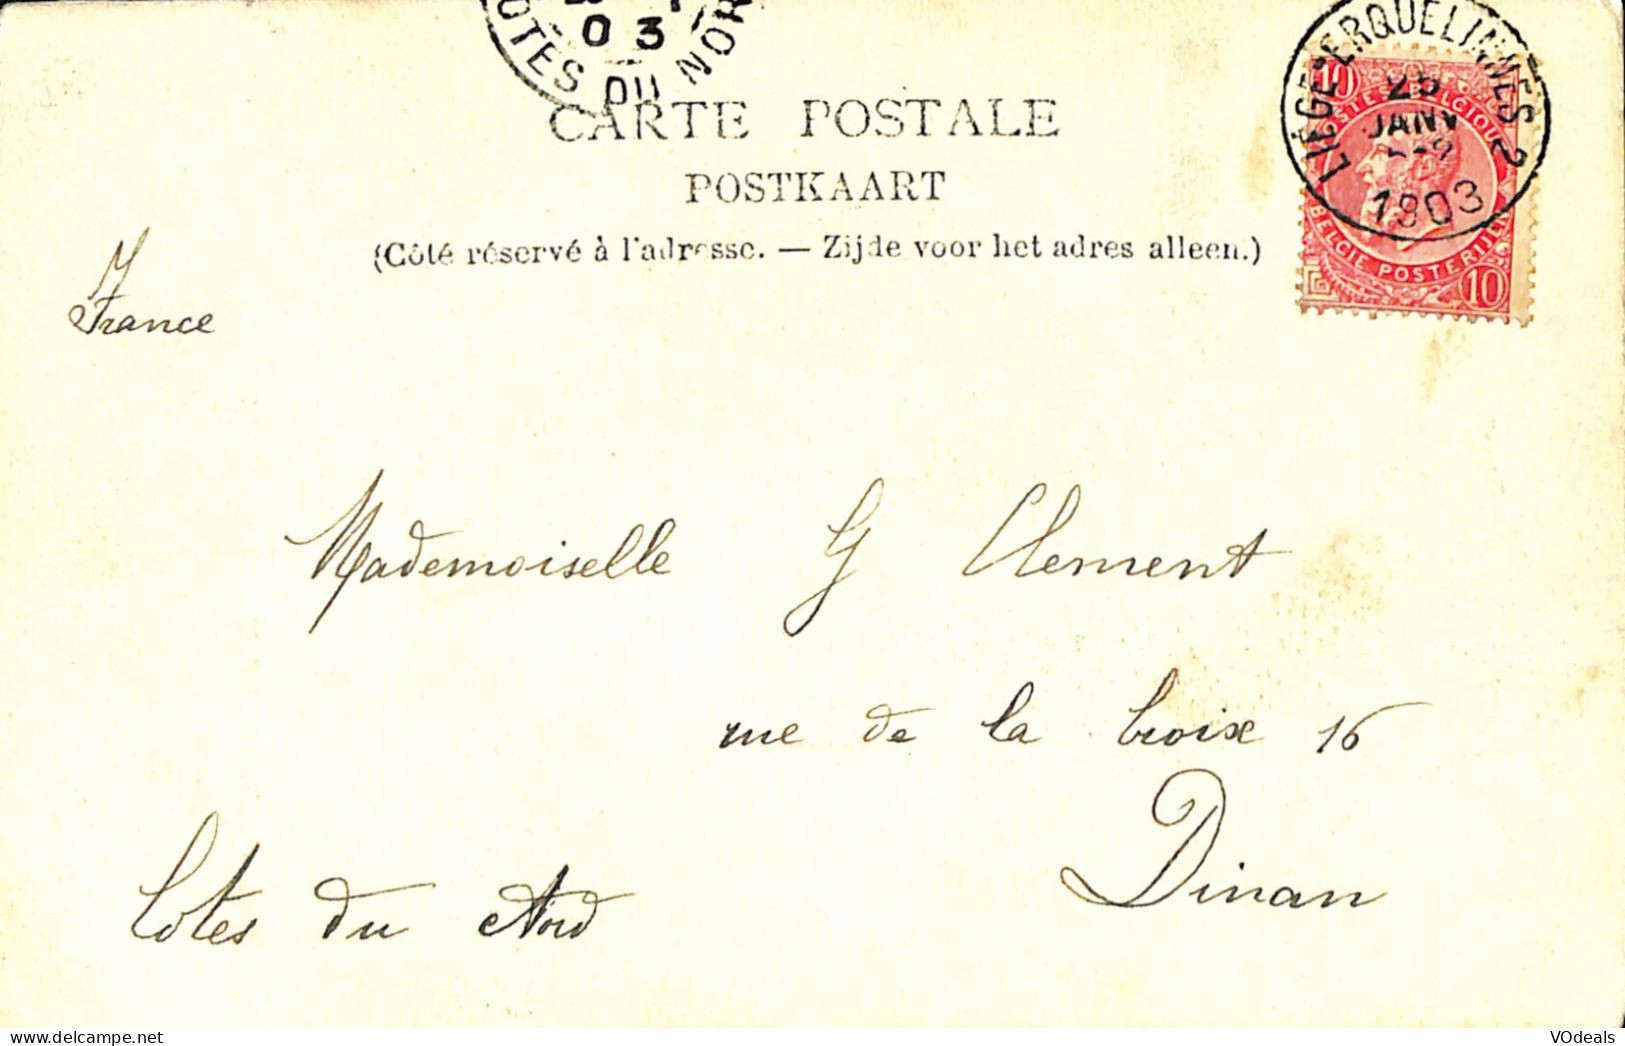 COTES DU NOR
0 3
LIÉGE-ERQUELINNES 2
25
JANV
1903
10
POSTES BELGIQUE
BELGIE POSTERIJEN
10
CARTE POSTALE
POSTKAART
(Côté réservé à l'adresse. — Zijde voor het adres alleen.)
France
Mademoiselle G Clement
rue de la Croix 16
Dinan
Cotes du Nord
VOdeals